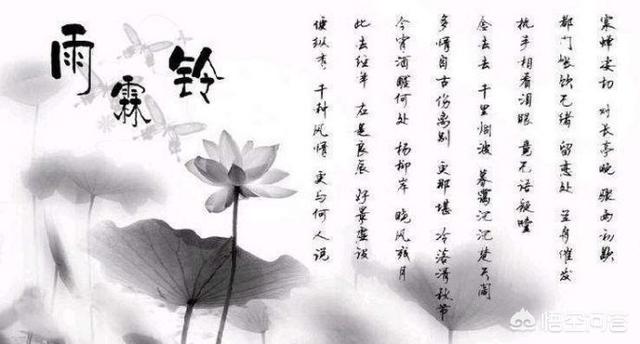 雨霖铃
寒蝉凄切 对长亭晚 骤雨初歇
都门帐饮无绪 留恋处 兰舟催发
执手相看泪眼 竟无语凝噎
念去去 千里烟波 暮霭沉沉楚天阔
多情自古伤离别 更那堪 冷落清秋节
今宵酒醒何处 杨柳岸 晓风残月
此去经年 应是良辰 好景虚设
便纵有 千种风情 更与何人说
悟空问答